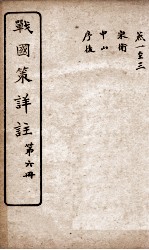 戰國策詳註
第六冊
燕一至三
宋衛
中山
序後